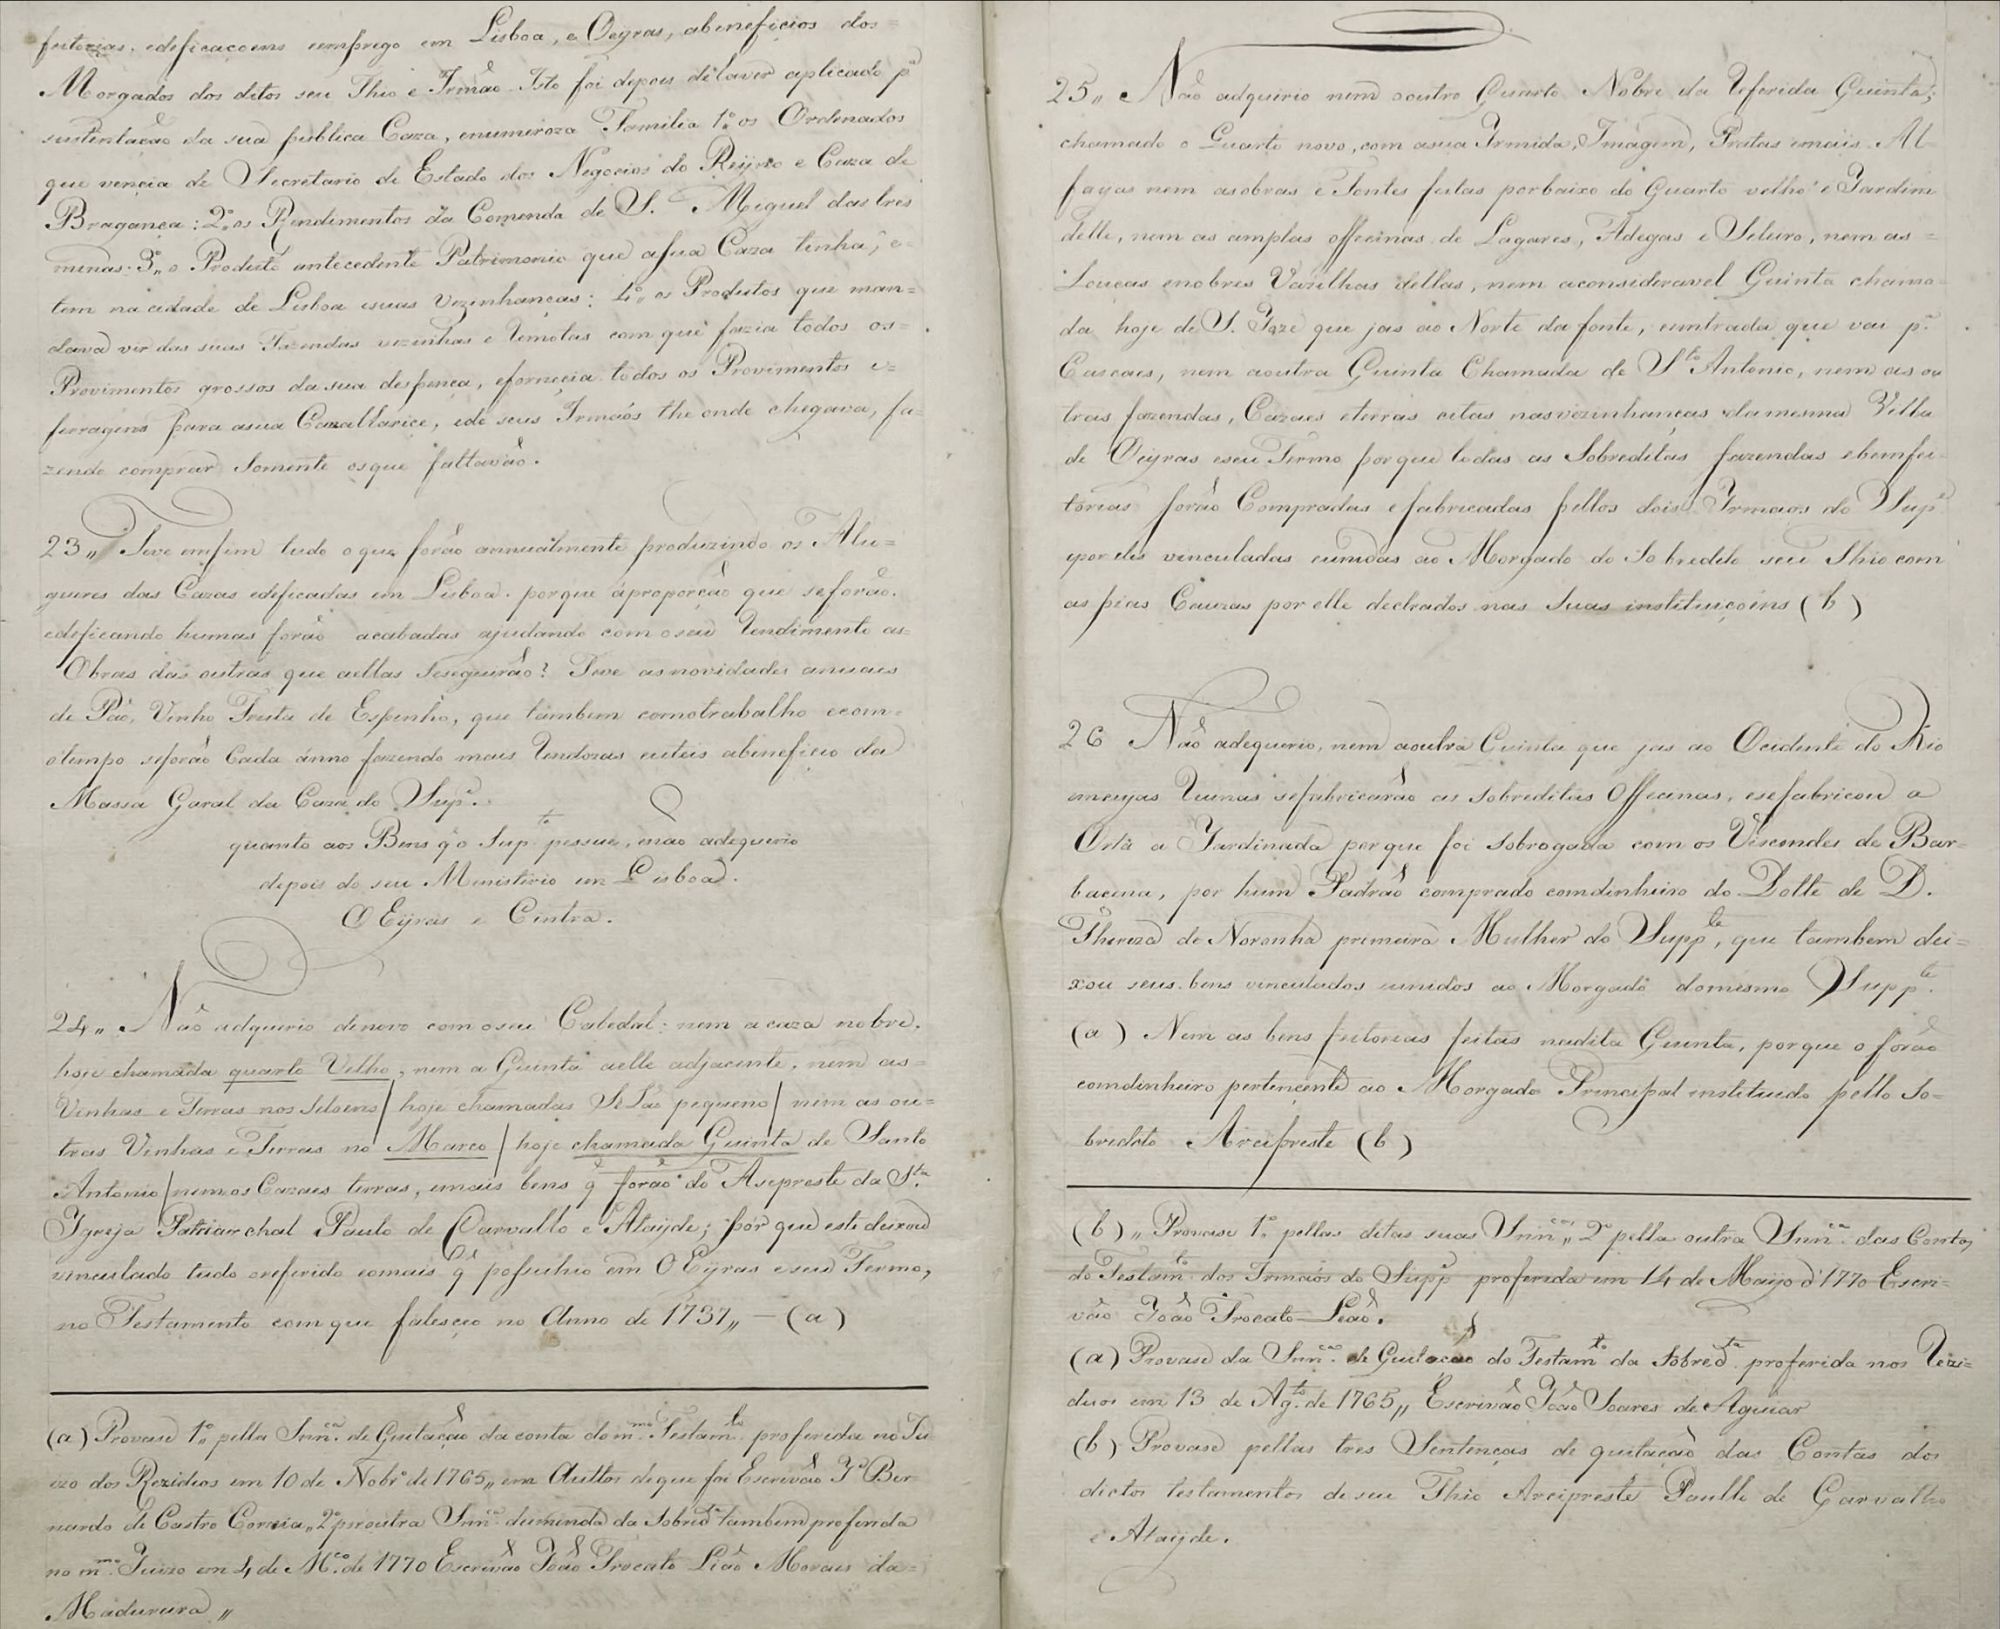 feitorias, edeficaçoens eemprego em Lisboa, e Oeyras, abeneficios dos=
Morgados dos ditos seu Thio e Irmão. Isto foi depois dehaver aplicado pª
sustentação da sua publica Caza, enumeroza Familia 1.º os Ordenados
que vencia de Secretario de Estado dos Negocios do Reijno e Caza de
Bragança: 2.º os Rendimentos da Comenda de S. Miguel das tres
minas: 3.º o Producto antecedente Patrimonio que asua Caza tinha, e-
tem na cidade de Lisboa esuas vezinhanças: 4.º os Produtos que man=
dava vir das suas Fazendas vezinhas e Remotas com que fazia todos os=
Provimentos grossos da sua despença, eforneçia todos os Provimentos e=
ferragens para asua Cavallarice, ede seus Irmãos the onde chegava, fa-
zendo comprar Somente os que faltavão.
23,, Teve emfim tudo o que forão annualmente produzindo os Alu=
gueres das Cazas edeficadas em Lisboa. porque áproporção que seforão.
edeficando humas forão acabadas ajudando com o seu Rendimento as=
Obras das outras que aellas Seseguirão? Teve as novidades anuaes
de Páo, Vinho Fruta de Espinho, que tambem como trabalho ecom=
otempo seforão Cada ánno fazendo mais Rendozas euteis abeneficio da
Massa Garal da Caza do Supe.
quanto aos Bens q̃ o Supte pessue, enão adequerio
depois do seu Ministerio em Lisboa.
OEijras e Cintra.
24,, Não adquerio denovo com o seu Cabedal: nem a caza nobre,
hoje chamada quarto Velho, nem a Quinta aelle adjacente, nem as=
Vinhas e Terras nos Seloens/ hoje chamadas pequeno/ nem as ou=
tras Vinhas e Terras no Marco/ hoje chamada Quinta de Santo
Antonio/ nem os Cazaes terras, emais bens q̃ forão do Asepreste da Sta
Igreja Patriarchal Paulo de Carvallo e Ataijde; pór que este deixou
vinculado tudo oreferido eomais q̃ possuhio em OEyras eseu Termo,
no Testamento com que faleseo no Anno de 1737,, — (a)
(a) Provase 1.º pella Snnca de Quitação da conta do mmo Testamto proferida no Iu
izo dos Rezidios em 10 de Nobrº de 1765,, em Auttos de que foi Escrivão Jº Ber-
nardo de Castro Correia,, 2º por outra Snnca da Sobreda tambem proferida
no mmo Juizo em 4 de Mço de 1770 Escrivão João Trocato Lião Moraes da=
Madurura,,
25,, Não adquirio nem ooutro Quarto Nobre da Referida Quinta;
chamado o Quarto novo, com asua Irmida, Imagem, Pratas emais Al-
fayas nem asobras e Fontes feitas porbaixo do Quarto velho e Jardim
delle, nem as amplas officinas de Lagares, Adegas e Seleiro, nem as=
Louças enobres Vazilhas dellas, nem aconsideravel Quinta chama-
da hoje de S. Joze que jas ao Norte da fonte, eentrada que vai pª
Cascaes, nem aoutra Quinta Chamada de Sto Antonio, nem as ou
tras fazendas, Cazaes eterras citas nas vezinhanças damesma Villa
de Oeyras eseu Termo porque todas as Sobreditas fazendas ebemfei-
torias forão Compradas efabricadas pellos dois Irmaos do Supe
epor eles vinculadas eunidas ao Morgado do Sobredito seu Thio com
as pias Cauzas por elle declrados nas Suas instituiçoins (b)
26 Não adequerio, nem aoutra Quinta que jas ao Ocidente do Rio
emcujas Ruinas sefabricarão as sobreditas Officinas, esefabricou a
Orta a Jardinada porque foi Sobrogada com os Viscondes de Bar=
bacena, por hum Padrão comprado comdinheiro do Dotte de D.
Thereza de Noronha premeira Mulher do Suppte, que tambem dei=
xou seus bens vinculados eunidos ao Morgado domesmo Suppte
(a) Nem as bens feitorias feitas nadita Quinta, porque o forão
comdinheiro pertençente ao Morgado Principal instituido pello So=
bredito Arcipreste (b)
(b),, Provase 1.º pellas ditas suas Snnças,, 2º pella outra Snnca das Contas
do Testamto dos Irmãos do Suppe proferida em 14 de Maijo d'1770 Escri-
vão João Trocato Leão.
(a) Provase da Snnca de Quitação do Testamto da Sobredta proferida nos Rezi=
duos em 13 de Agto de 1765,, Escrivão João Soares de Aguiar
(b) Provase pellas tres Sentenças de quitação das Contas dos
dictos testamentos de seu Thio Arcipreste Paullo de Carvalho
e Ataijde.